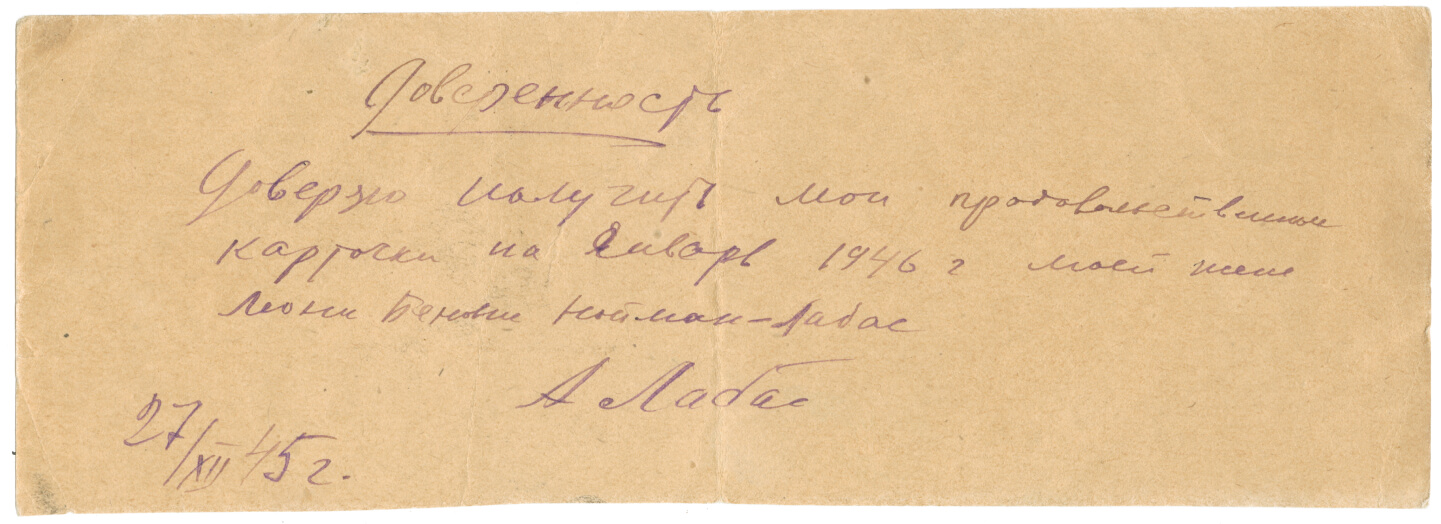 Доверенность
Доверяю получить мои продовольственные
карточки на Январь 1946 г моей жене
Леони Беновне Нойман-Лабас
А Лабас
27/XII 45 г.